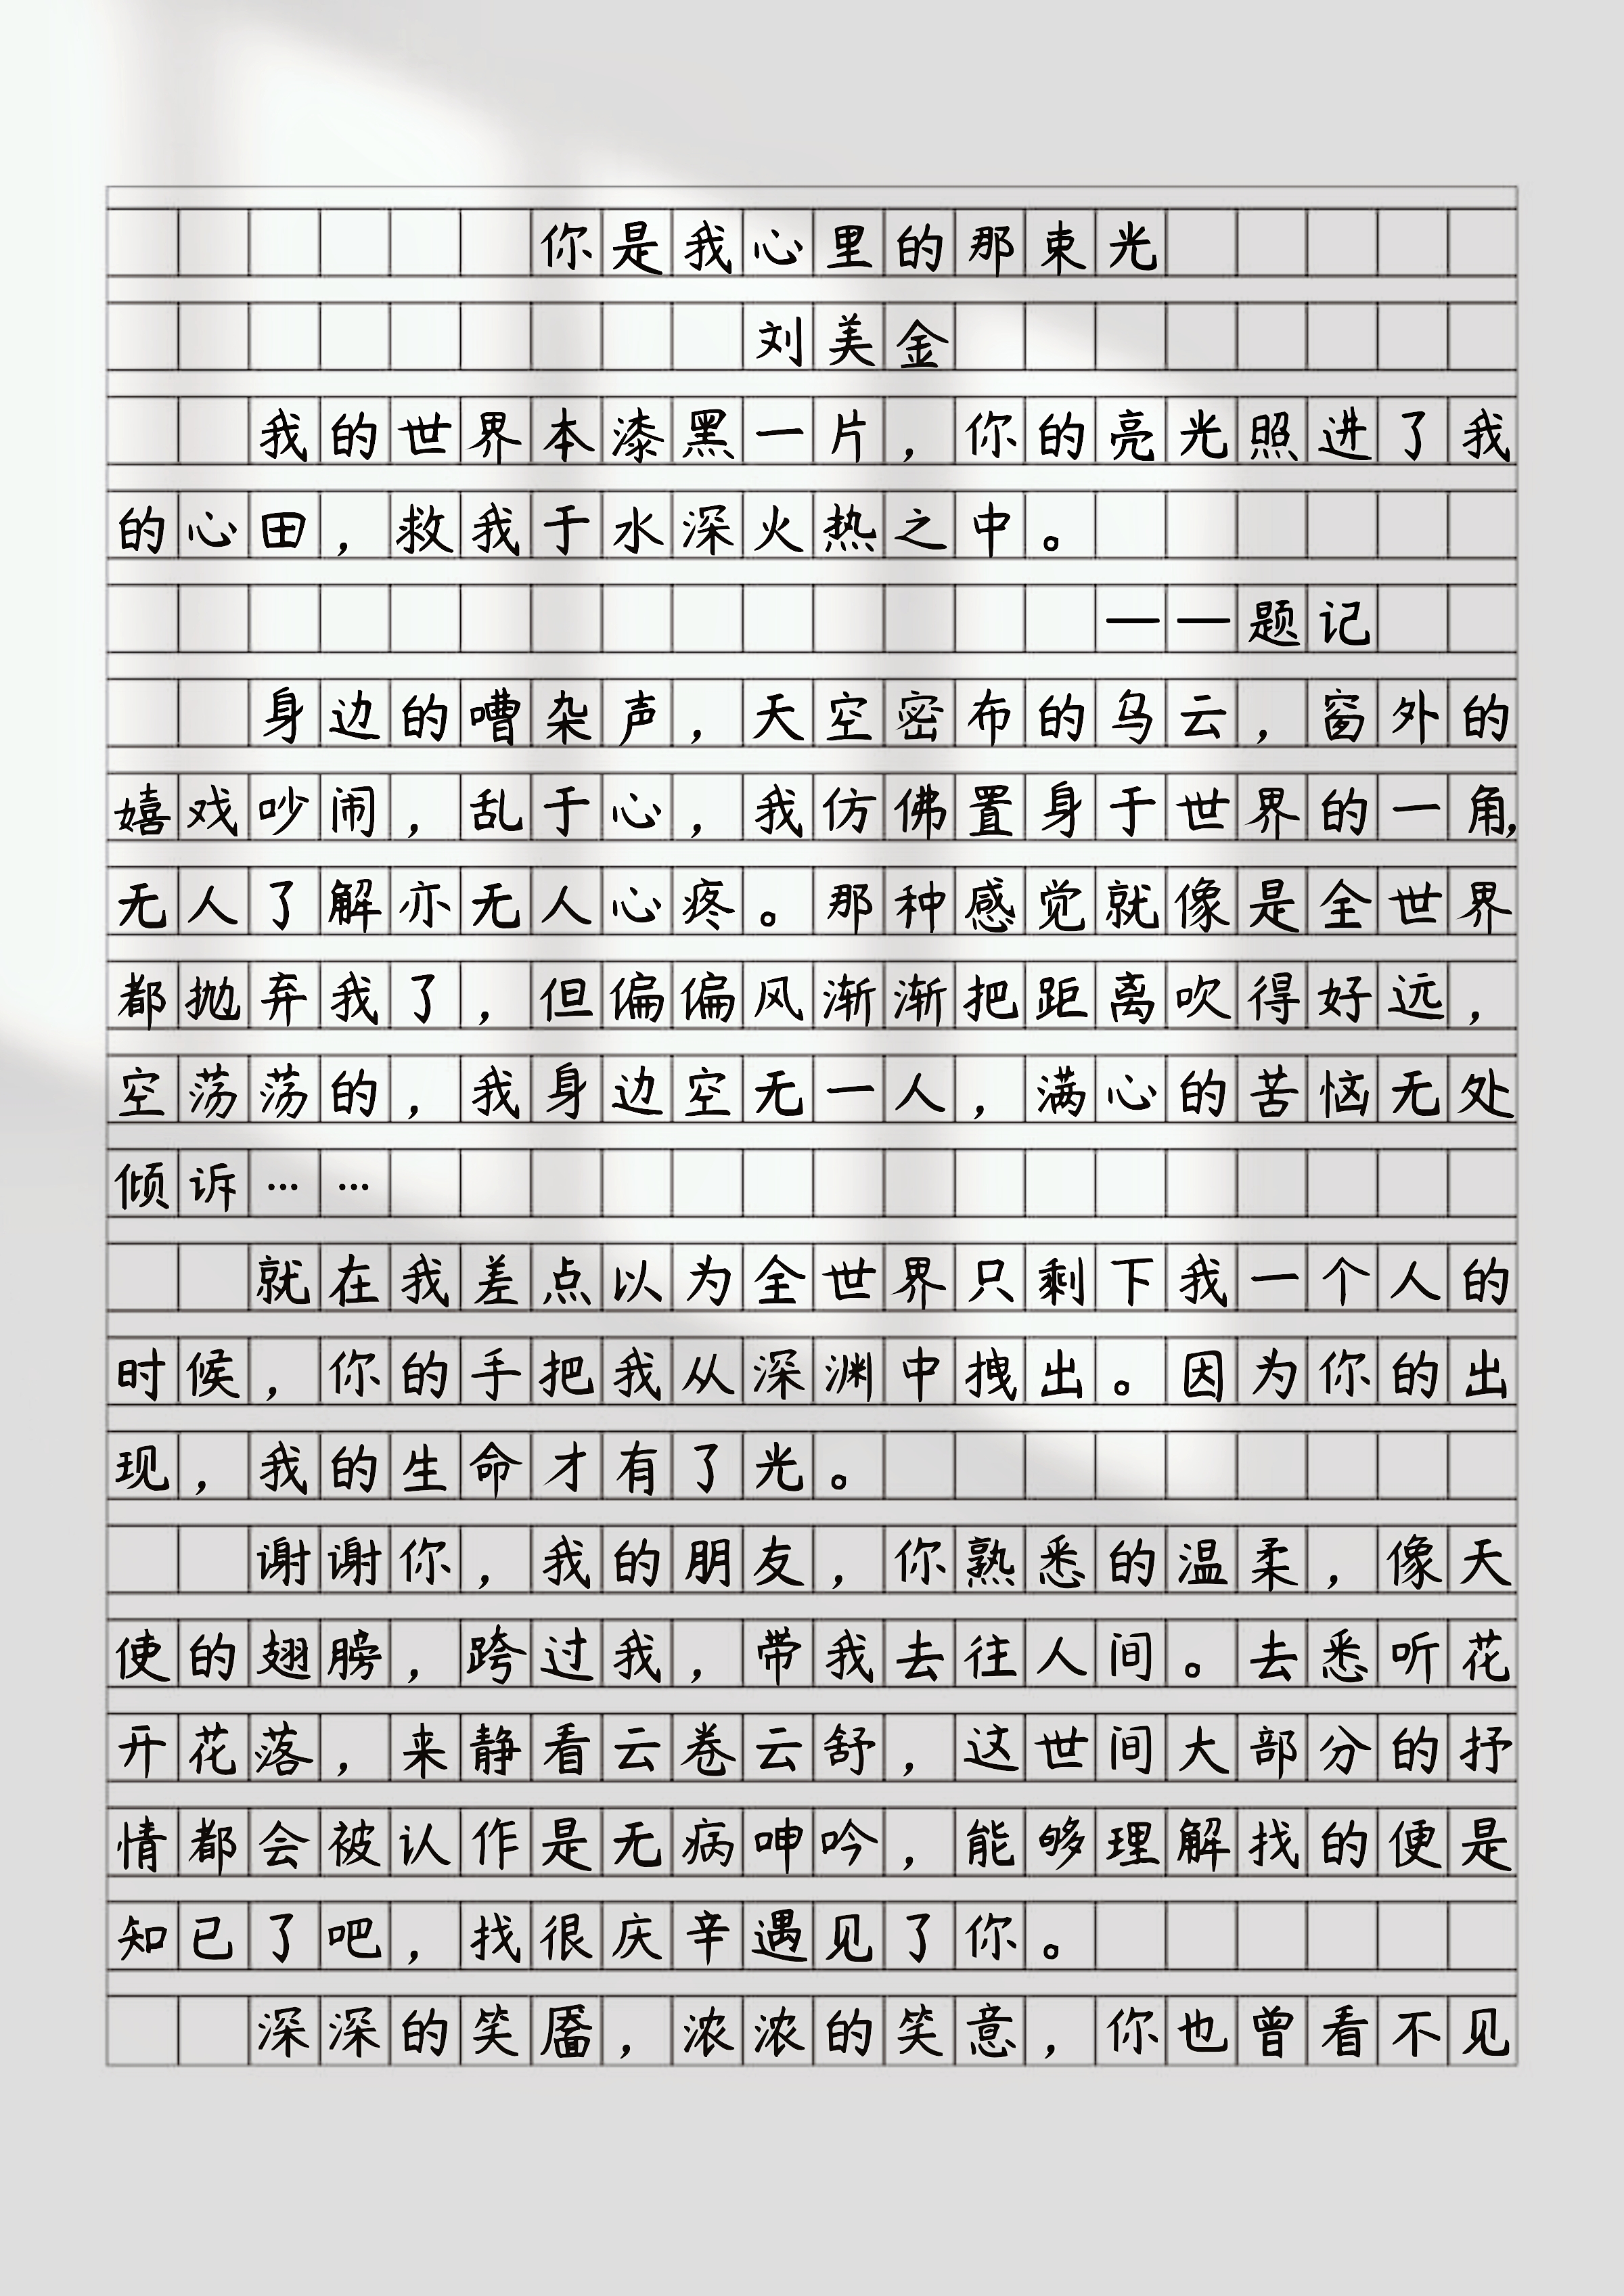 你是我心里的那束光
刘美金
我的世界本漆黑一片，你的亮光照进了我
的心田，救我于水深火热之中。
——题记
身边的嘈杂声，天空密布的乌云，窗外的
嬉戏吵闹，乱于心，我仿佛置身于世界的一角，
无人了解亦无人心疼。那种感觉就像是全世界
都抛弃我了，但偏偏风渐渐把距离吹得好远，
空荡荡的，我身边空无一人，满心的苦恼无处
倾诉……
就在我差点以为全世界只剩下我一个人的
时候，你的手把我从深渊中拽出。因为你的出
现，我的生命才有了光。
谢谢你，我的朋友，你熟悉的温柔，像天
使的翅膀，跨过我，带我去往人间。去悉听花
开花落，来静看云卷云舒，这世间大部分的抒
情都会被认作是无病呻吟，能够理解找的便是
知已了吧，找很庆辛遇见了你。
深深的笑靥，浓浓的笑意，你也曾看不见